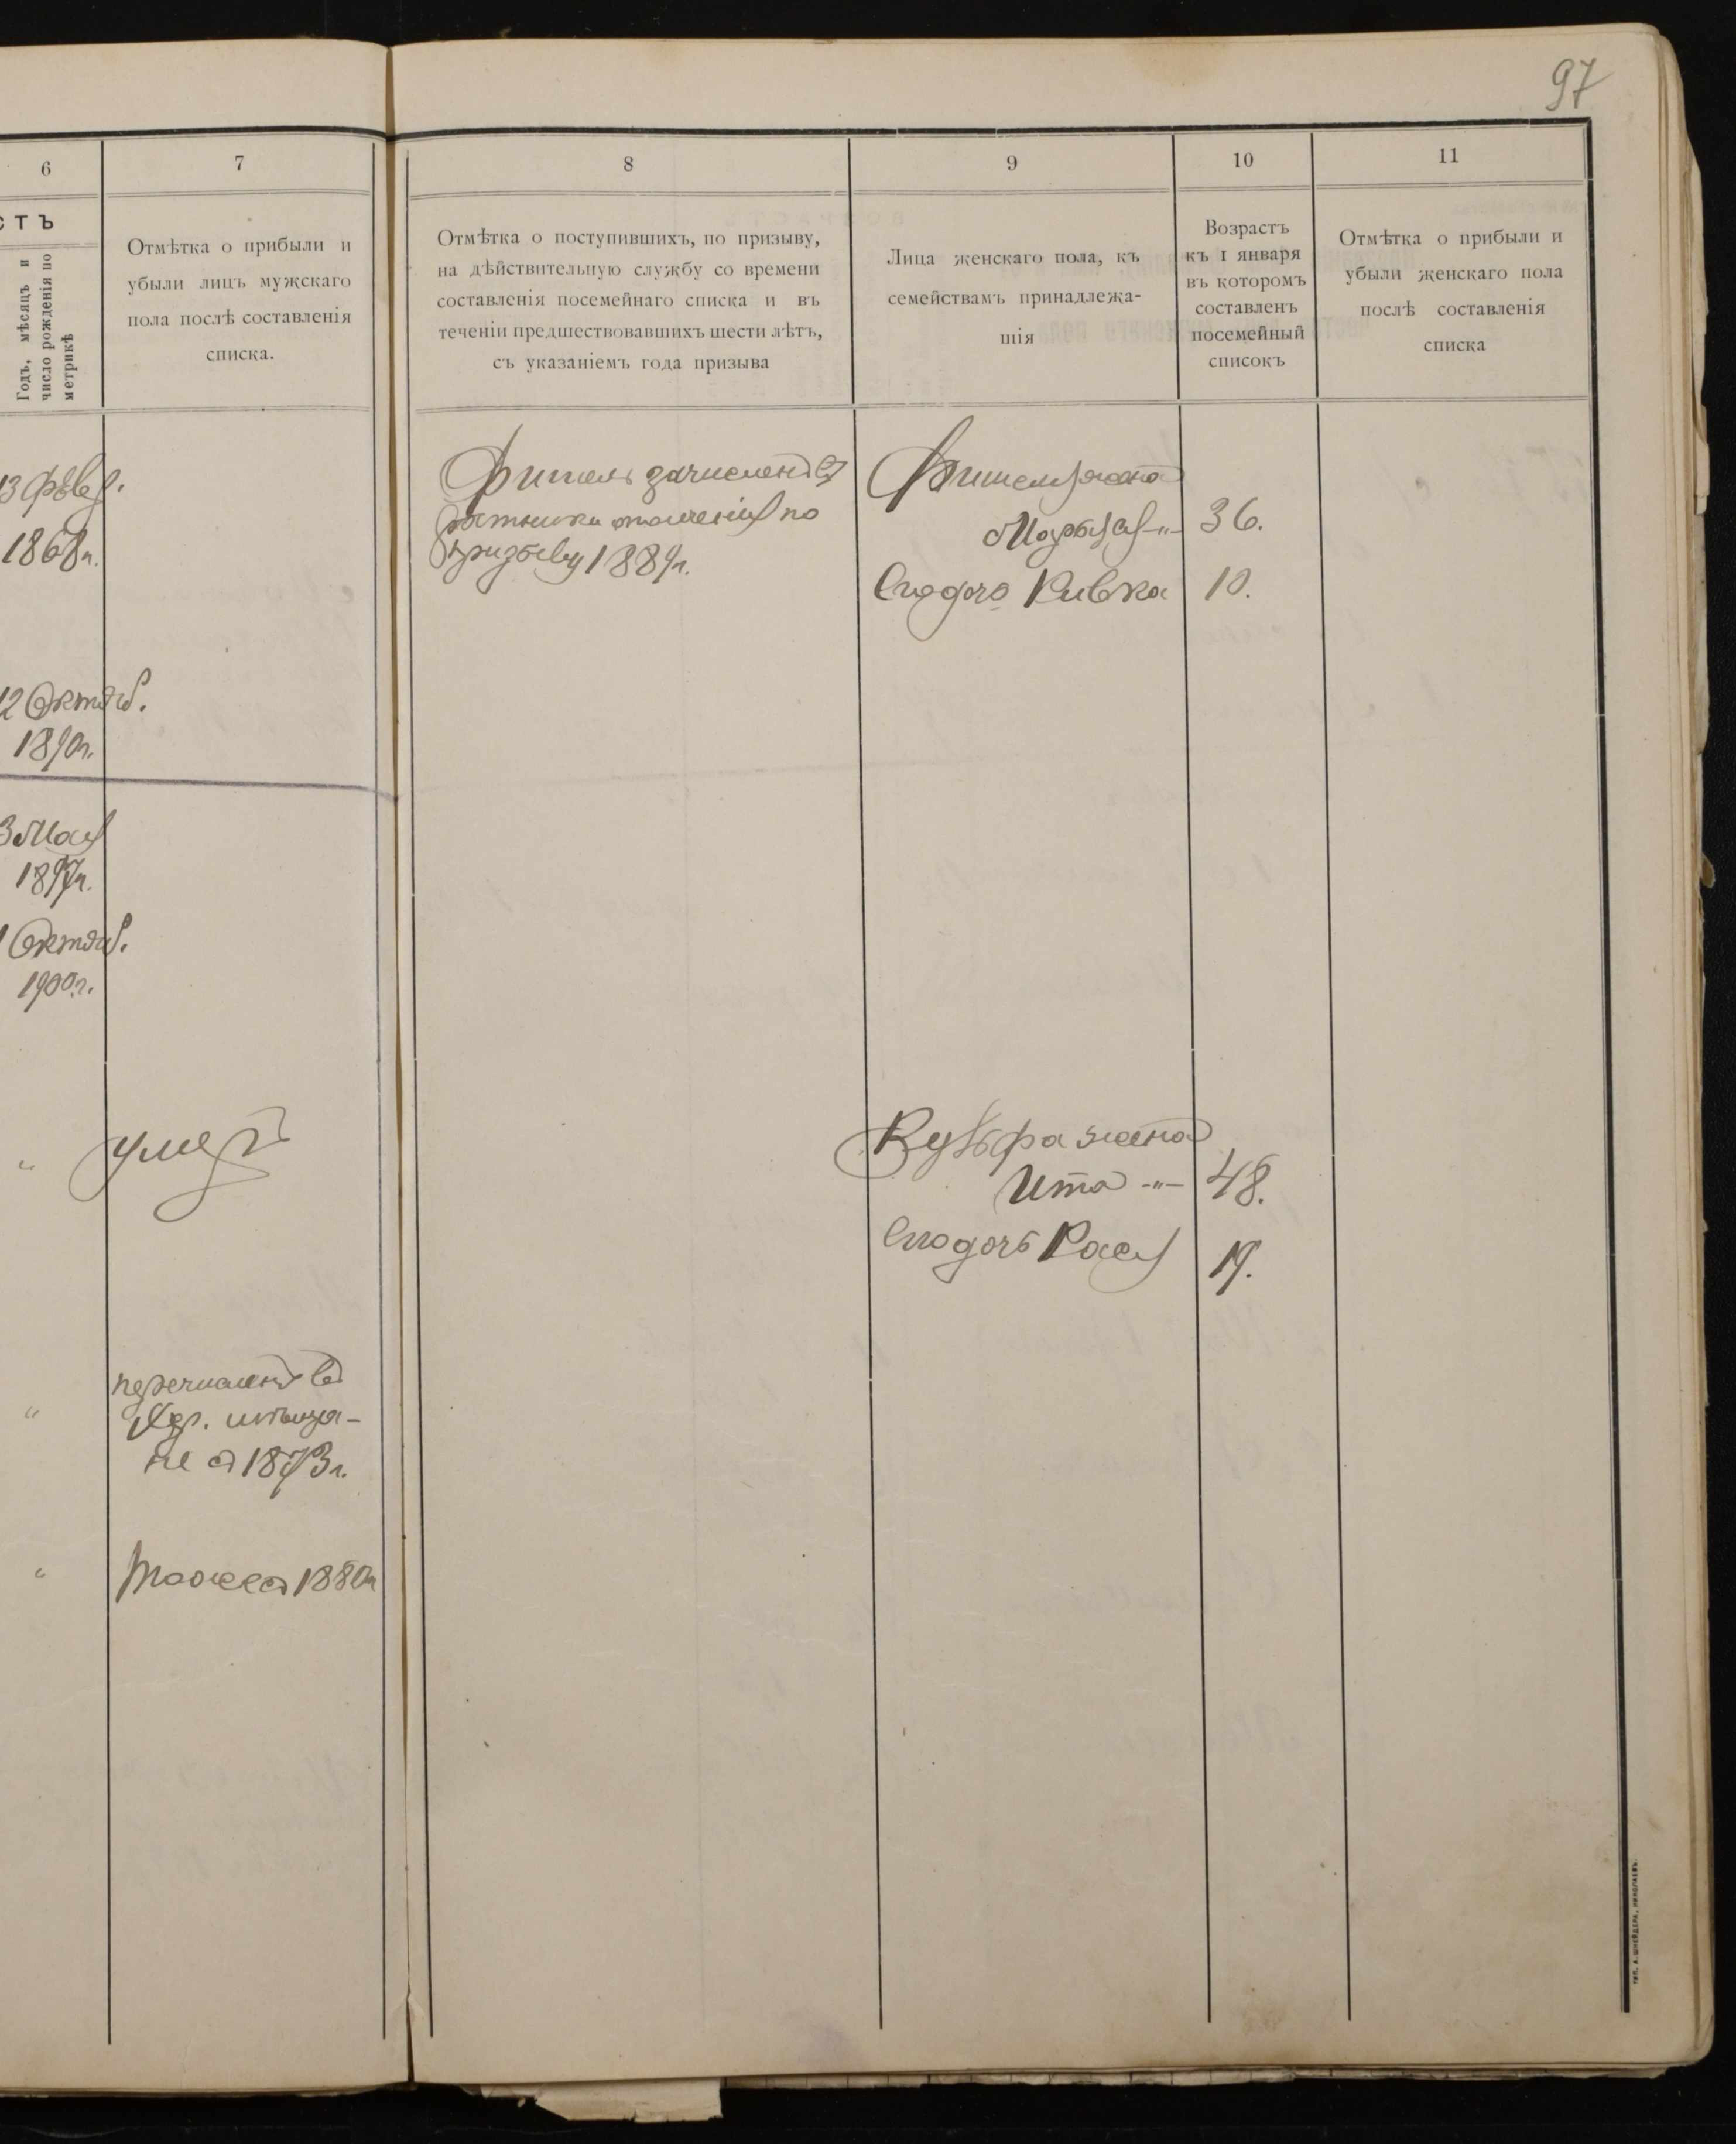 97
6
7
8
9
10
11
сть
Годъ, мѣсяцъ и
число рожденія по
метрикѣ
Отмѣтка о прибыли и
убыли лицъ мужскаго
пола послѣ составленія
списка.
Отмѣтка о поступившихъ, по призыву,
на дѣйствительную службу со времени
составленія посемейнаго списка и въ
теченіи предшествовавшихъ шести лѣтъ,
съ указаніемъ года призыва
Лица женскаго пола, къ
семействамъ принадлежа-
щія
Возрастъ
къ 1 января
въ которомъ
составленъ
посемейный
списокъ
Отмѣтка о прибыли и
убыли женскаго пола
послѣ составленія
списка
13 февр.
1868г.
12 Октяб.
1890г.
3 Мая
1897г.
1 Октяб.
1900г.
" умеръ
" перечисленъ въ
Хер. мѣща-
не съ 1873г.
" тоже съ 1880г
Фишель зачисленъ въ
ратники ополченія по
призыву 1889г.
Фишеля жена
Марьяся -"- 36.
Его дочь Ривка 10.
Вульфа жена
Ита -"- 48.
Его дочь Рася 19.
Тип. А. Шнейдера, Николаевъ.